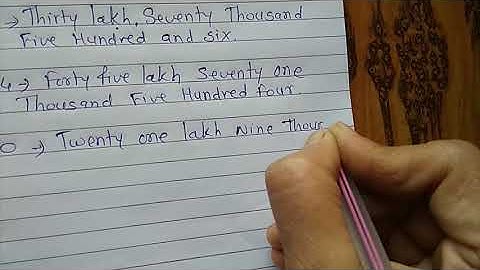 → Thirty lakh, Seventy Thousand
Five Hundred and six.
4 → Forty five lakh Seventy one
Thousand Five Hundred four.
0 → Twenty one lakh Nine Thous